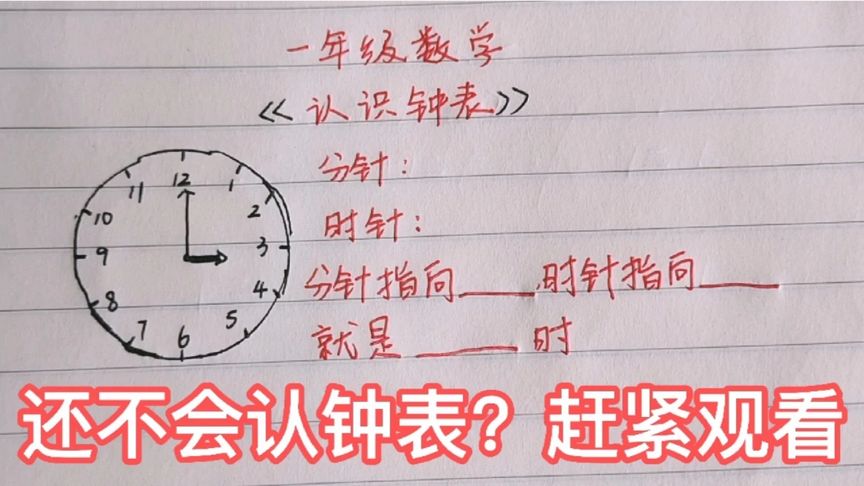 一年级数学
《认识钟表》
分针：
时针：
分针指向____,时针指向____
就是____时
12
1
2
3
4
5
6
7
8
9
10
11
还不会认钟表？赶紧观看